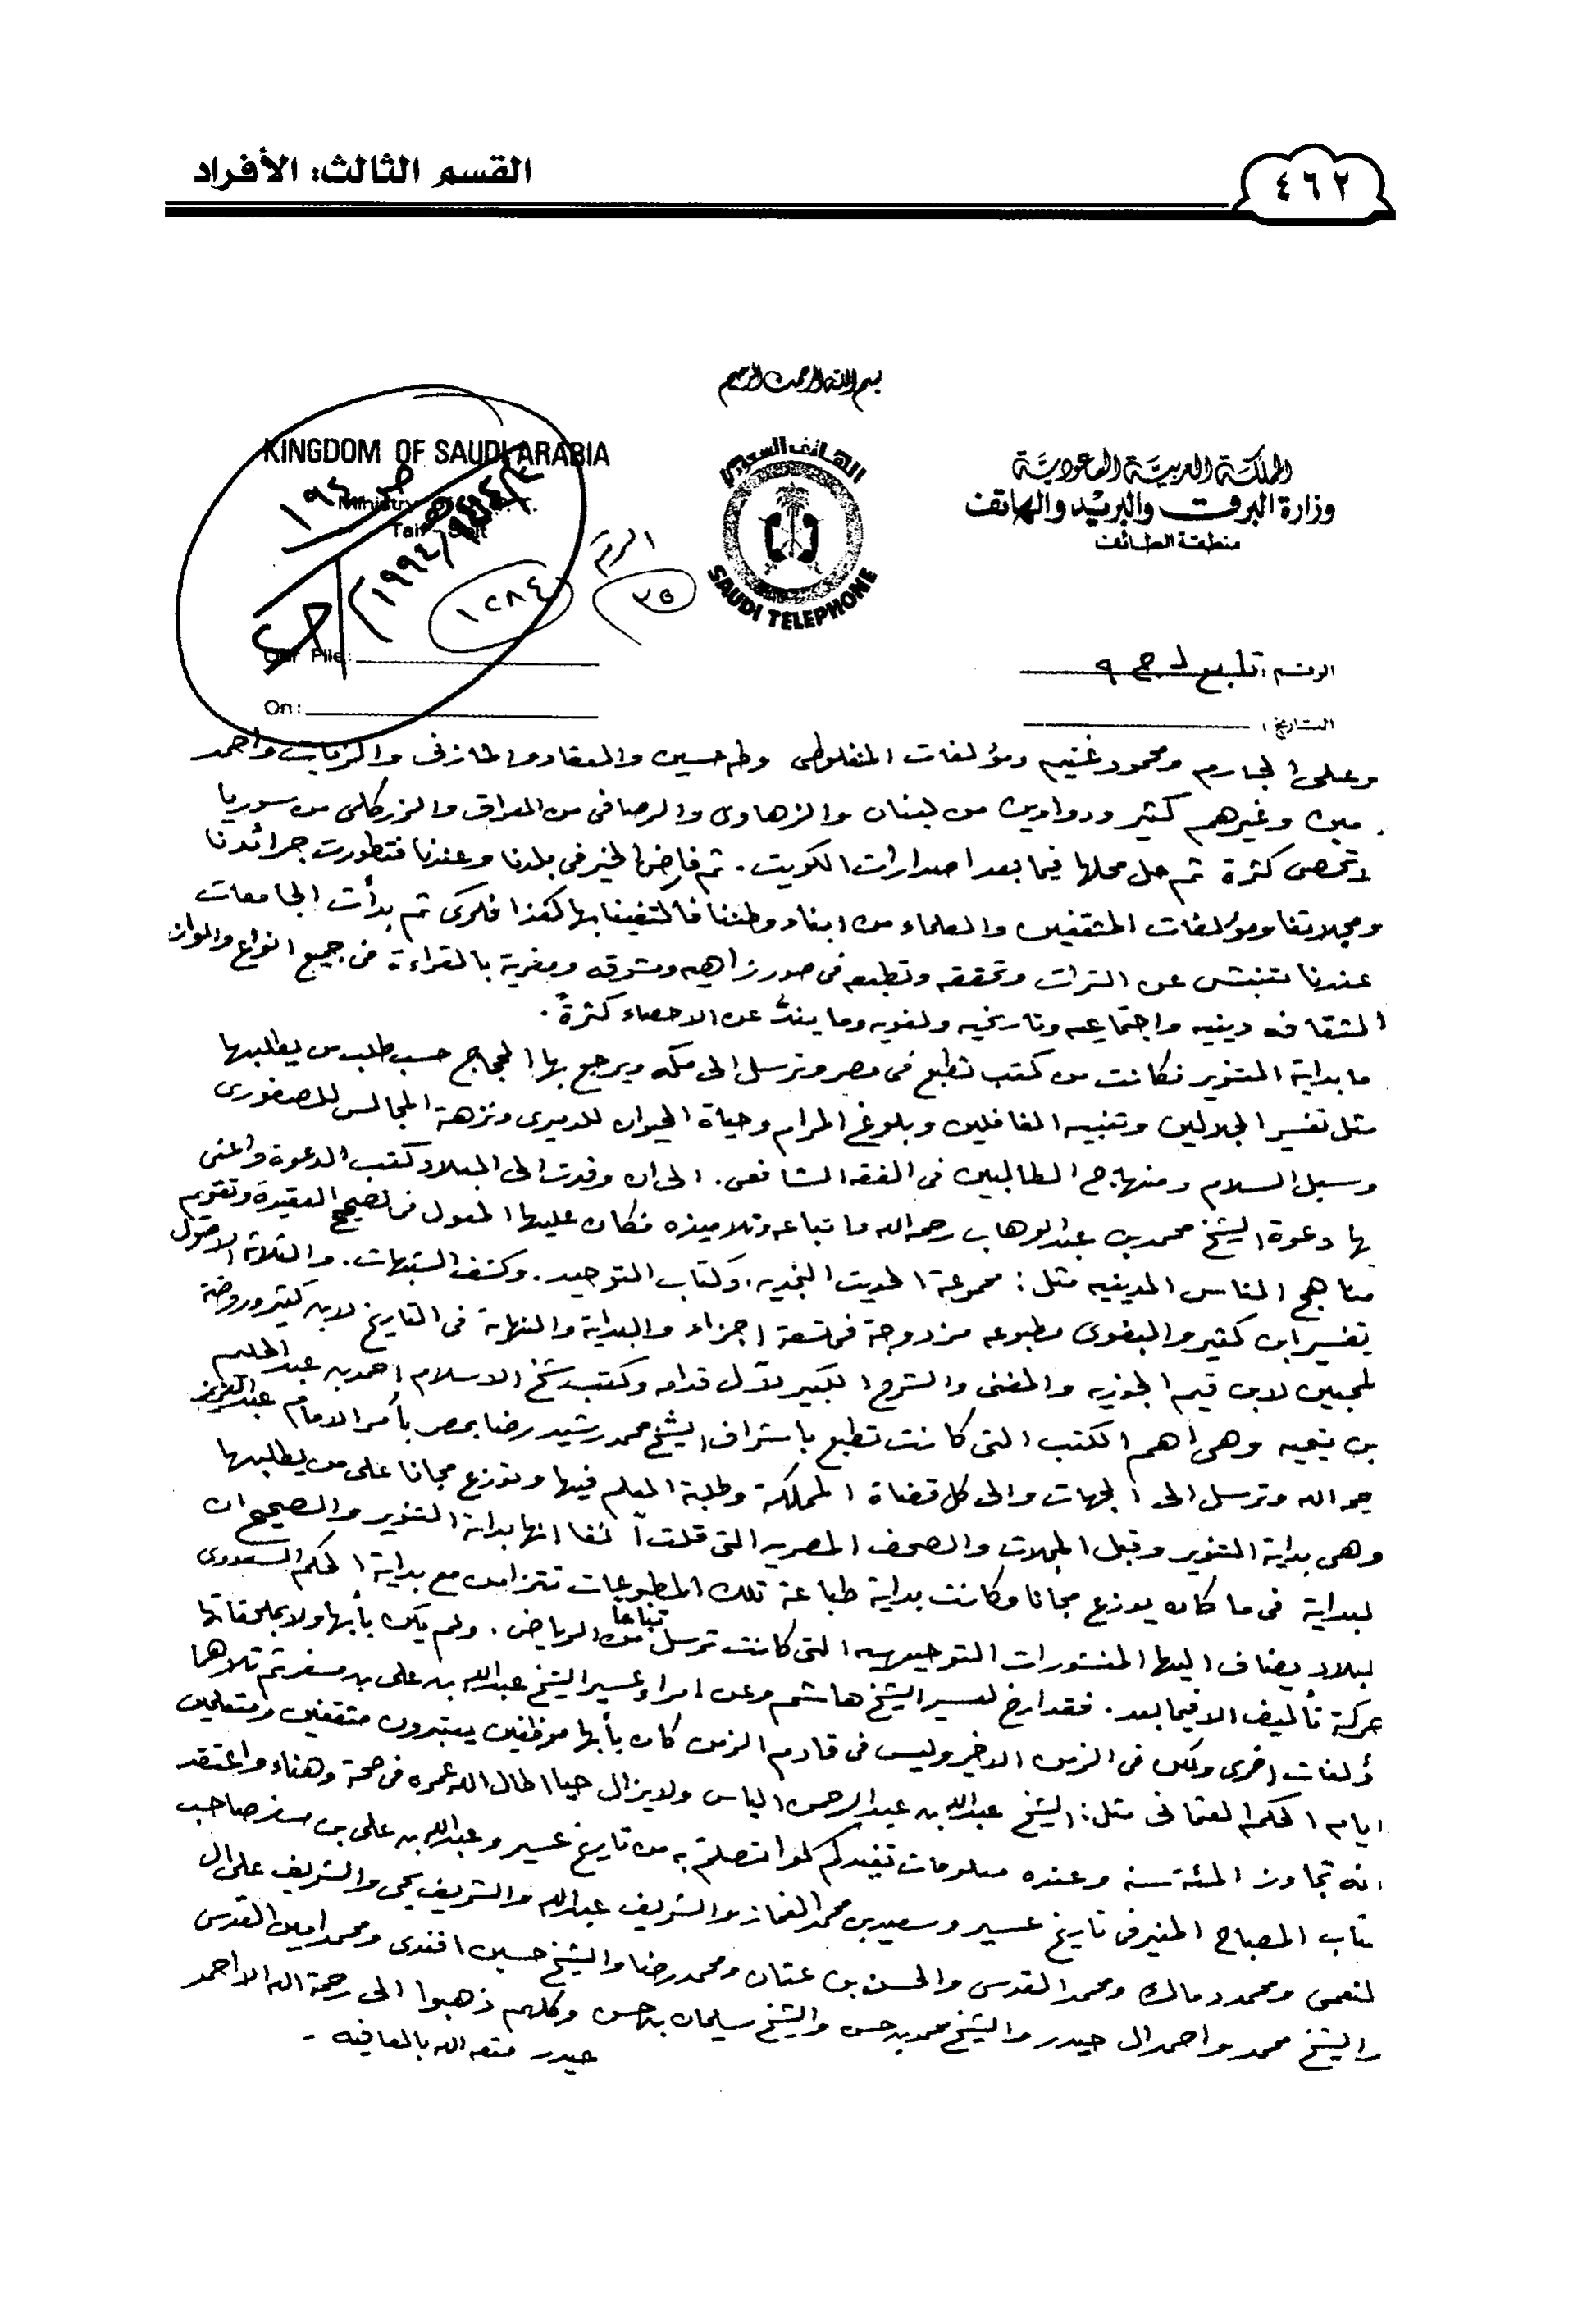 القسم الثالث: الأفراد
٤٦٢
بسم الله الرحمن الرحيم
KINGDOM OF SAUDI ARABIA
Ministry
الهاتف السعودي
SAUDI TELEPHONE
المملكة العربية السعودية
وزارة البرق والبريد والهاتف
منطقة الطائف
ص ١٩٤
١٩٩٤
الرقم
٣٥
١٢٨٤
Our File:
On:
الرقم: تابع لـ ج ٩
التاريخ:
وعلى الجارم ومحمود غنيم ومؤلفات المنفلوطى وطه حسين والعقاد والمازنى والزيات واحمد
مين وغيرهم كثير ودواوين من لبنان والزهاوى والرصافى من العراق والزركلى من سوريا
لا تحصى كثرة ثم حل محلها فيما بعد اصدارات الكويت. ثم فاض الخير فى بلدنا وعندنا فتطورت جرائدنا
ومجلاتنا ومؤلفات المثقفين والعلماء من ابناء وطننا فاكتفينا بها كغذا فكرى ثم بدأت الجامعات
عندنا تنبش عن التراث وتحققه وتطبعه فى صور زاهيه ومشرقه ومغرية بالقراءة فى جميع انواع والوان
الثقافه دينيه واجتماعيه وتاريخيه ولغويه وما يندُّ عن الاحصاء كثرةً.
ما بداية التنوير فكانت من كتب تطبع فى مصر وترسل الى مكه ويرجع بها الحجاج حسب طلب من يطلبها
مثل تفسير الجلالين وتنبيه الغافلين وبلوغ المرام وحياة الحيوان للدميرى ونزهة المجالس للصفورى
وسبل السلام ومنهاج الطالبين فى الفقه الشافعى. الى ان وفدت الى البلاد كتب الدعوة واعنى
بها دعوة الشيخ محمد بن عبدالوهاب رحمه الله واتباعه وتلاميذه فكان عليها المعول فى تصحيح العقيدة وتقويم
مناهج الناس الدينيه مثل: مجموعة الحديث النجديه. وكتاب التوحيد. وكشف الشبهات. والثلاثة الاصول
تفسير ابن كثير والبغوى مطبوعه مزدوجة فى تسعة اجزاء والبداية والنهاية فى التاريخ لابن كثير وروضة
لمحبين لابن قيم الجوزيه والمغنى والشرح الكبير لآل قدامه وكتب شيخ الاسلام احمد بن عبدالحليم
بن تيميه وهى اهم الكتب التى كانت تطبع باشراف الشيخ محمد رشيد رضا بمصر بأمر الامام عبدالعزيز
حمه الله وترسل الى الجهات والى كل قضاة المملكة وطلبة العلم فيها وتوزع مجانا على من يطلبها
وهى بداية التنوير وقبل المجلات والصحف المصريه التى قلت آنفا انها بداية التنوير والصحيح ان
لبداية فى ما كان يوزع مجانا وكانت بداية طباعة تلك المطبوعات تتزامن مع بداية الحكم السعودى
لبلاد يضاف اليها المنشورات التوجيهيه التى كانت ترسل تباعا من الرياض. ولم يكن بأبها ولا بملحقاتها
حركة تأليف الا فيما بعد. فقد ارخ لعسير الشيخ هاشم وعن امراء عسير الشيخ عبدالله بن على بن مسفر ثم تلاهما
ؤلفات اخرى ولكن فى الزمن الاخير وليس فى قادم الزمن كان بأبها موظفين يعتبرون مثقفين ومتعلمين
ايام الحكم العثمانى مثل: الشيخ عبدالله بن عبدالرحمن الياس ولا يزال حيا اطال الله عمره فى صحة وهناء واعتقد
انه تجاوز المئة سنة وعنده معلومات تفيدكم لو اتصلتم به من تاريخ عسير وعبدالله بن على بن مسفر صاحب
تاب المصباح المنير فى تاريخ عسير وسعيد بن محمد الغماز والشريف عبدالله والشريف يحى والشريف على ال
لنعمى ومحمد دمالك ومحمد القدسى والحسن بن عثان ومحمد رضا والشيخ حسين افندى ومحمد امين القدسى
والشيخ محمد واحمد ال حيدر والشيخ محمد بن حسن والشيخ سليمان بن حسن وكلهم ذهبوا الى رحمة الله الا احمد
حيدر متعه الله بالعافيه -